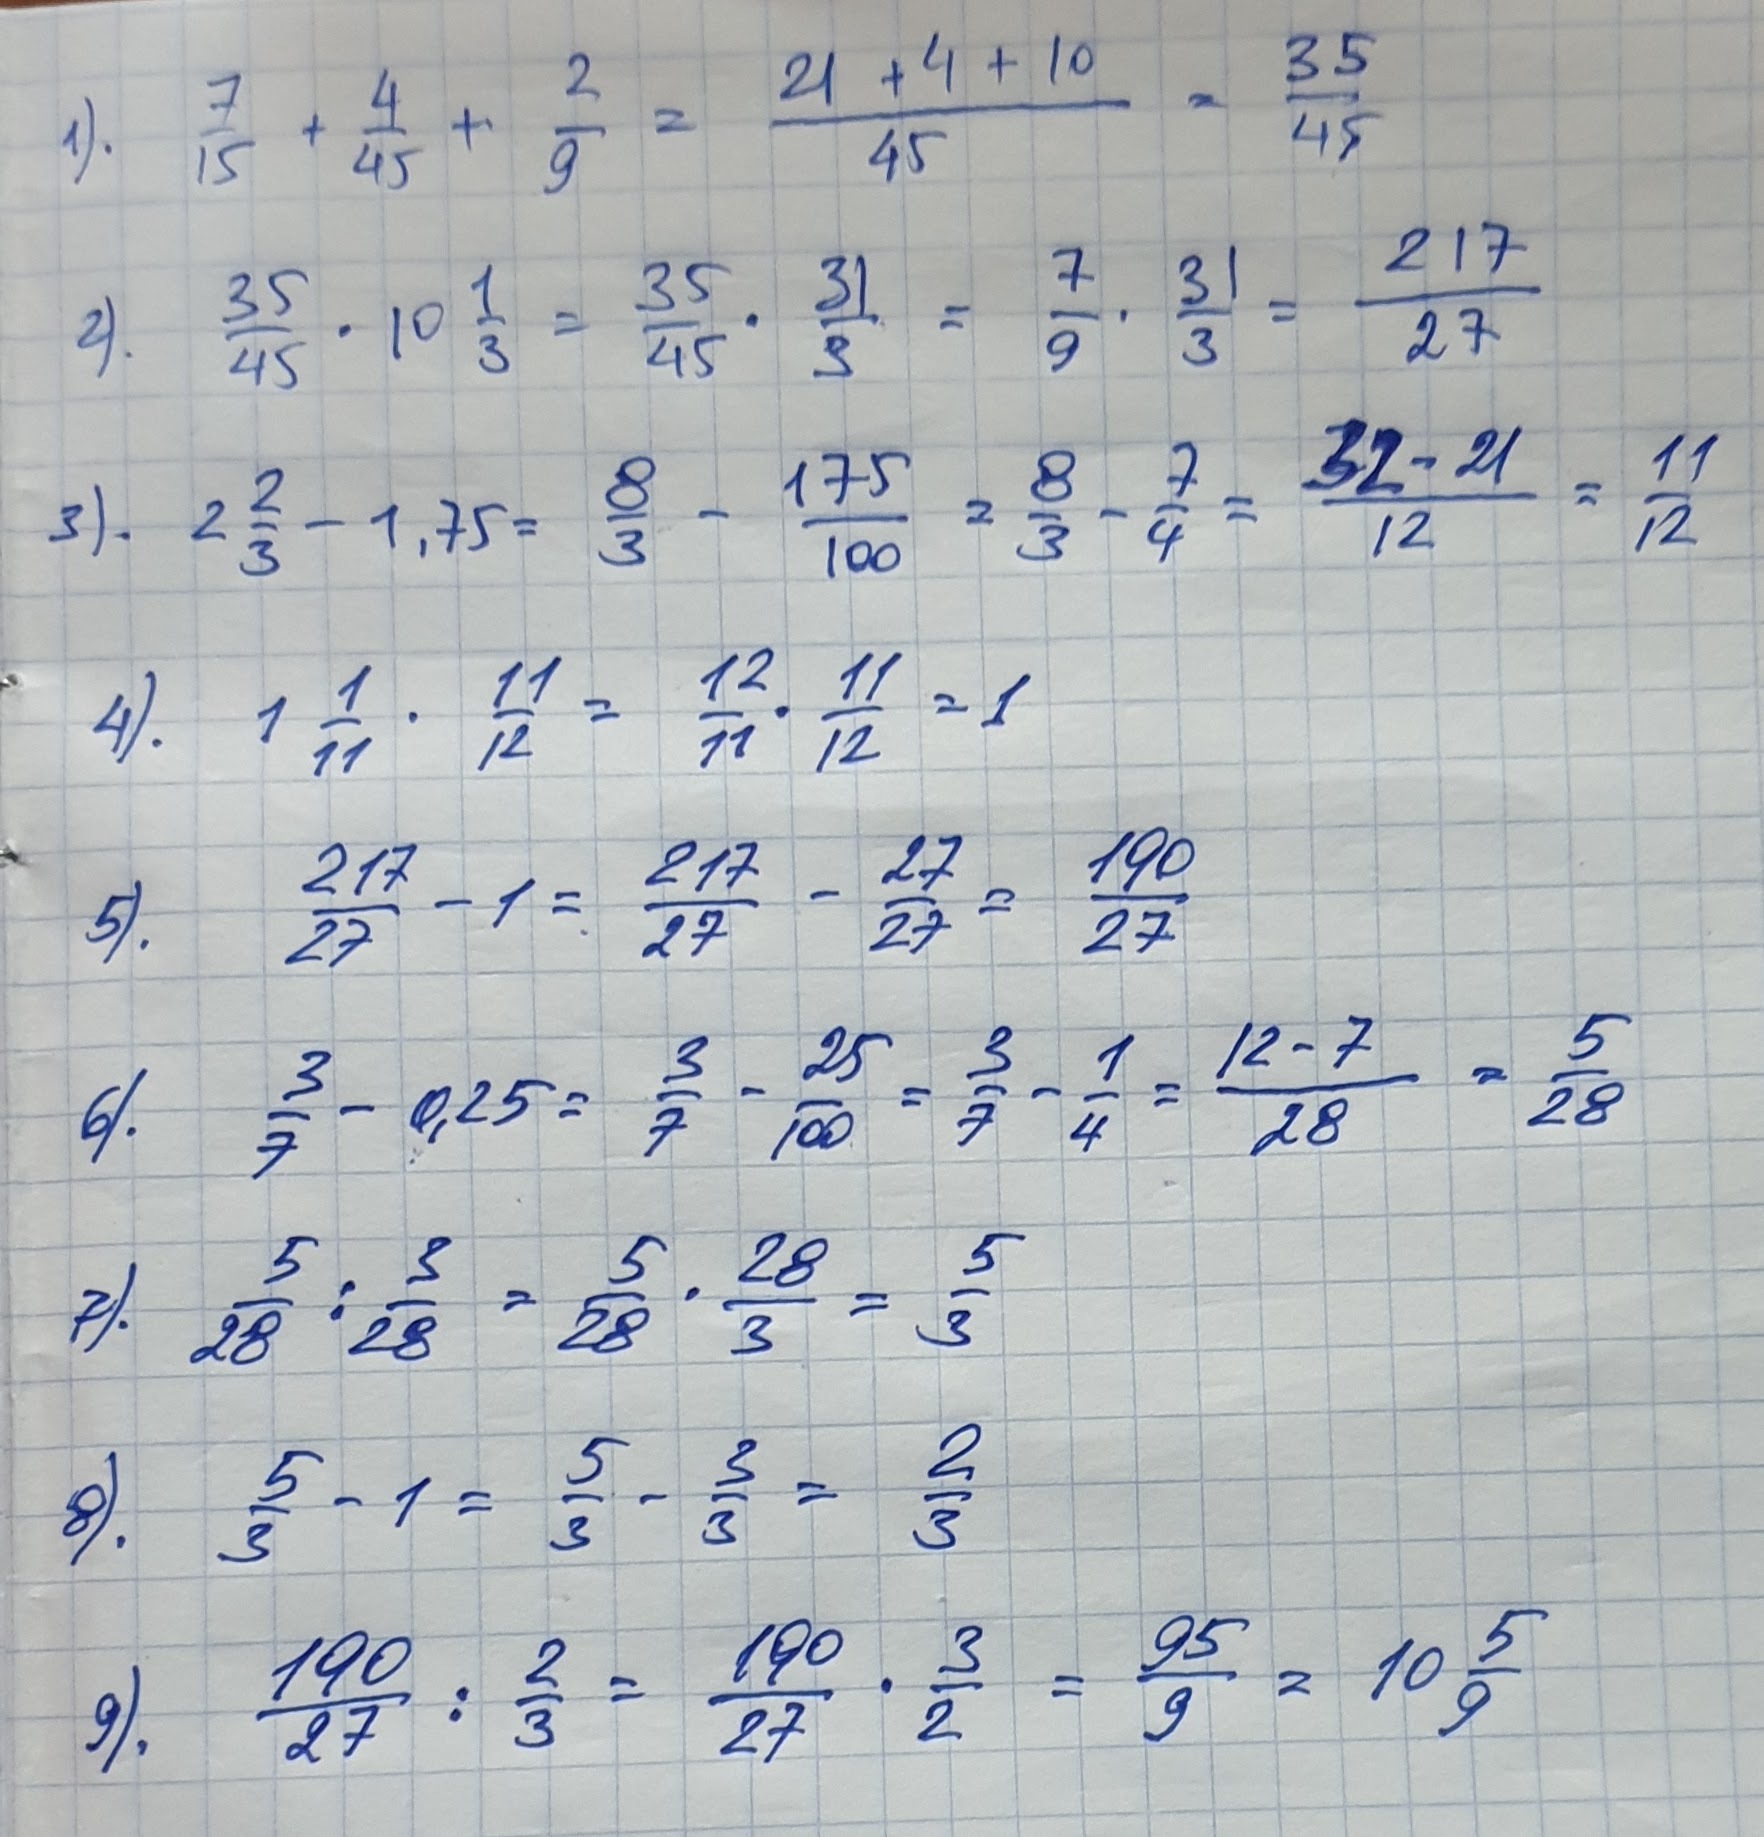 1). 7/15 + 4/45 + 2/9 = (21 + 4 + 10)/45 = 35/45
2). 35/45 · 10 1/3 = 35/45 · 31/3 = 7/9 · 31/3 = 217/27
3). 2 2/3 - 1,75 = 8/3 - 175/100 = 8/3 - 7/4 = (32 - 21)/12 = 11/12
4). 1 1/11 · 11/12 = 12/11 · 11/12 = 1
5). 217/27 - 1 = 217/27 - 27/27 = 190/27
6). 3/7 - 0,25 = 3/7 - 25/100 = 3/7 - 1/4 = (12 - 7)/28 = 5/28
7). 5/28 : 3/28 = 5/28 · 28/3 = 5/3
8). 5/3 - 1 = 5/3 - 3/3 = 2/3
9). 190/27 : 2/3 = 190/27 · 3/2 = 95/9 = 10 5/9